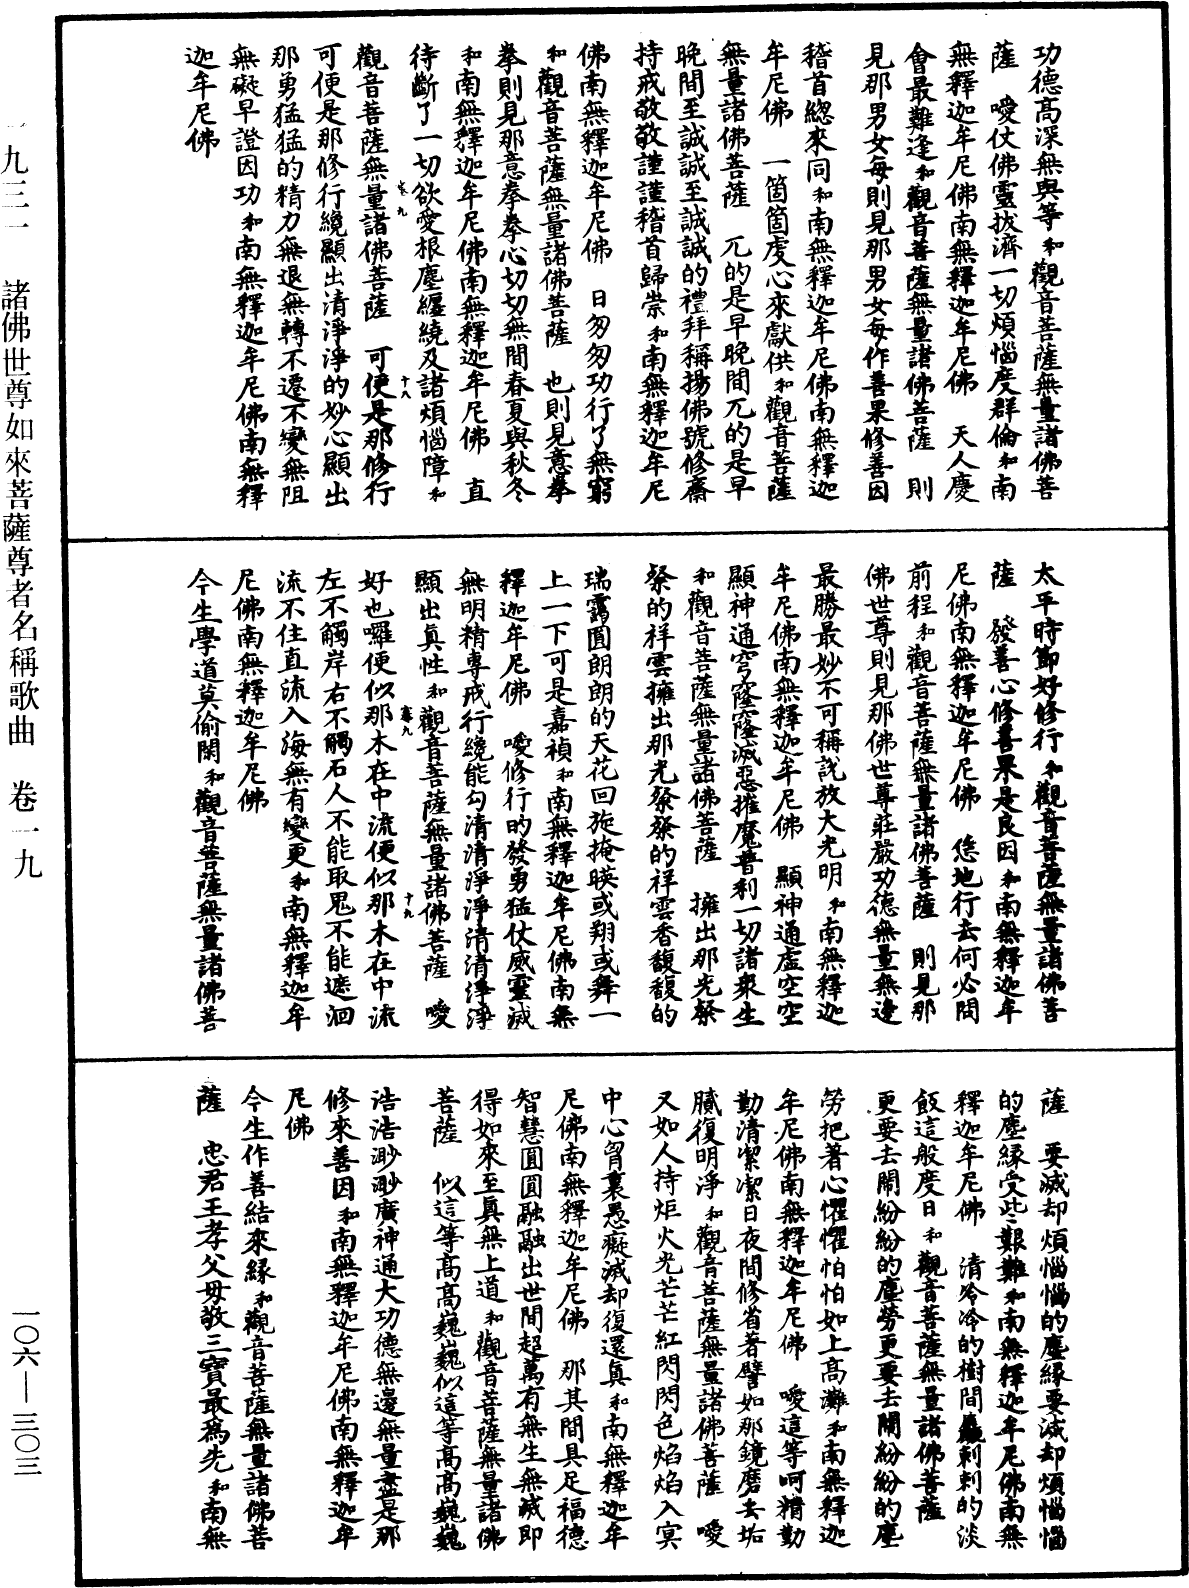 功德高深無與等和觀音菩薩無量諸佛菩
薩　噯仗佛靈拔濟一切煩惱度群倫和南
無釋迦牟尼佛南無釋迦牟尼佛　天人慶
會最難逢和觀音菩薩無量諸佛菩薩　則
見那男女每則見那男女每作善果修善因
稽首緫來同和南無釋迦牟尼佛南無釋迦
牟尼佛　一箇箇虔心來獻供和觀音菩薩
無量諸佛菩薩　兀的是早晚間兀的是早
晚間至誠誠至誠誠的禮拜稱揚佛號修齋
持戒敬敬謹謹稽首歸崇和南無釋迦牟尼
佛南無釋迦牟尼佛　日匆匆功行了無窮
和觀音菩薩無量諸佛菩薩　也則見意拳
拳則見那意拳拳心切切無間春夏與秋冬
和南無釋迦牟尼佛南無釋迦牟尼佛　直
待斷了一切欲愛根塵纏繞及諸煩惱障和
觀音菩薩無量諸佛菩薩　可便是那修行
可便是那修行纔顯出清淨淨的妙心顯出
那勇猛猛的精力無退無轉不遷不變無阻
無礙早證因功和南無釋迦牟尼佛南無釋
迦牟尼佛
太平時節好修行和觀音菩薩無量諸佛菩
薩　發善心修善果是良因和南無釋迦牟
尼佛南無釋迦牟尼佛　恁地行去何必問
前程和觀音菩薩無量諸佛菩薩　則見那
佛世尊則見那佛世尊莊嚴功德無量無邊
最勝最妙不可稱說放大光明和南無釋迦
牟尼佛南無釋迦牟尼佛　顯神通虛空空
顯神通穹窿窿滅惡摧魔普利一切諸衆生
和觀音菩薩無量諸佛菩薩　擁出那光燦
燦的祥雲擁出那光燦燦的祥雲香馥馥的
瑞靄圓朗朗的天花回旋掩暎或翔或舞一
上一下可是嘉禎和南無釋迦牟尼佛南無
釋迦牟尼佛　噯修行的發勇猛仗威靈滅
無明精專戒行纔能勾清清淨淨清清淨淨
顯出真性和觀音菩薩無量諸佛菩薩　噯
好也囉便似那木在中流便似那木在中流
左不觸岸右不觸石人不能取鬼不能遮洄
流不住直流入海無有變更和南無釋迦牟
尼佛南無釋迦牟尼佛
今生學道莫偷閑和觀音菩薩無量諸佛菩
薩　要滅却煩惱惱的塵緣要滅却煩惱惱
的塵緣受此艱難和南無釋迦牟尼佛南無
釋迦牟尼佛　清冷冷的樹間麤剌剌的淡
飯這般度日和觀音菩薩無量諸佛菩薩
更要去閙紛紛的塵勞更要去閙紛紛的塵
勞把著心懼懼怕怕如上高灘和南無釋迦
牟尼佛南無釋迦牟尼佛　噯這等呵精勤
勤清潔潔日夜間修省著譬如那鏡磨去垢
膩復明淨和觀音菩薩無量諸佛菩薩　噯
又如人持炬火光芒芒紅閃閃色焰焰入冥
中心胷裏愚癡滅却復還真和南無釋迦牟
尼佛南無釋迦牟尼佛　那其間具足福德
智慧圓圓融融出世間超萬有無生無滅即
得如來至真無上道和觀音菩薩無量諸佛
菩薩　似這等高高巍巍似這等高高巍巍
浩浩渺渺廣神通大功德無邊無量盡是那
修來善因和南無釋迦牟尼佛南無釋迦牟
尼佛
今生作善結來緣和觀音菩薩無量諸佛菩
薩　忠君王孝父母敬三寶最爲先和南無
十八
十九
一九三一　諸佛世尊如來菩薩尊者名稱歌曲　卷一九
一〇六—三〇三